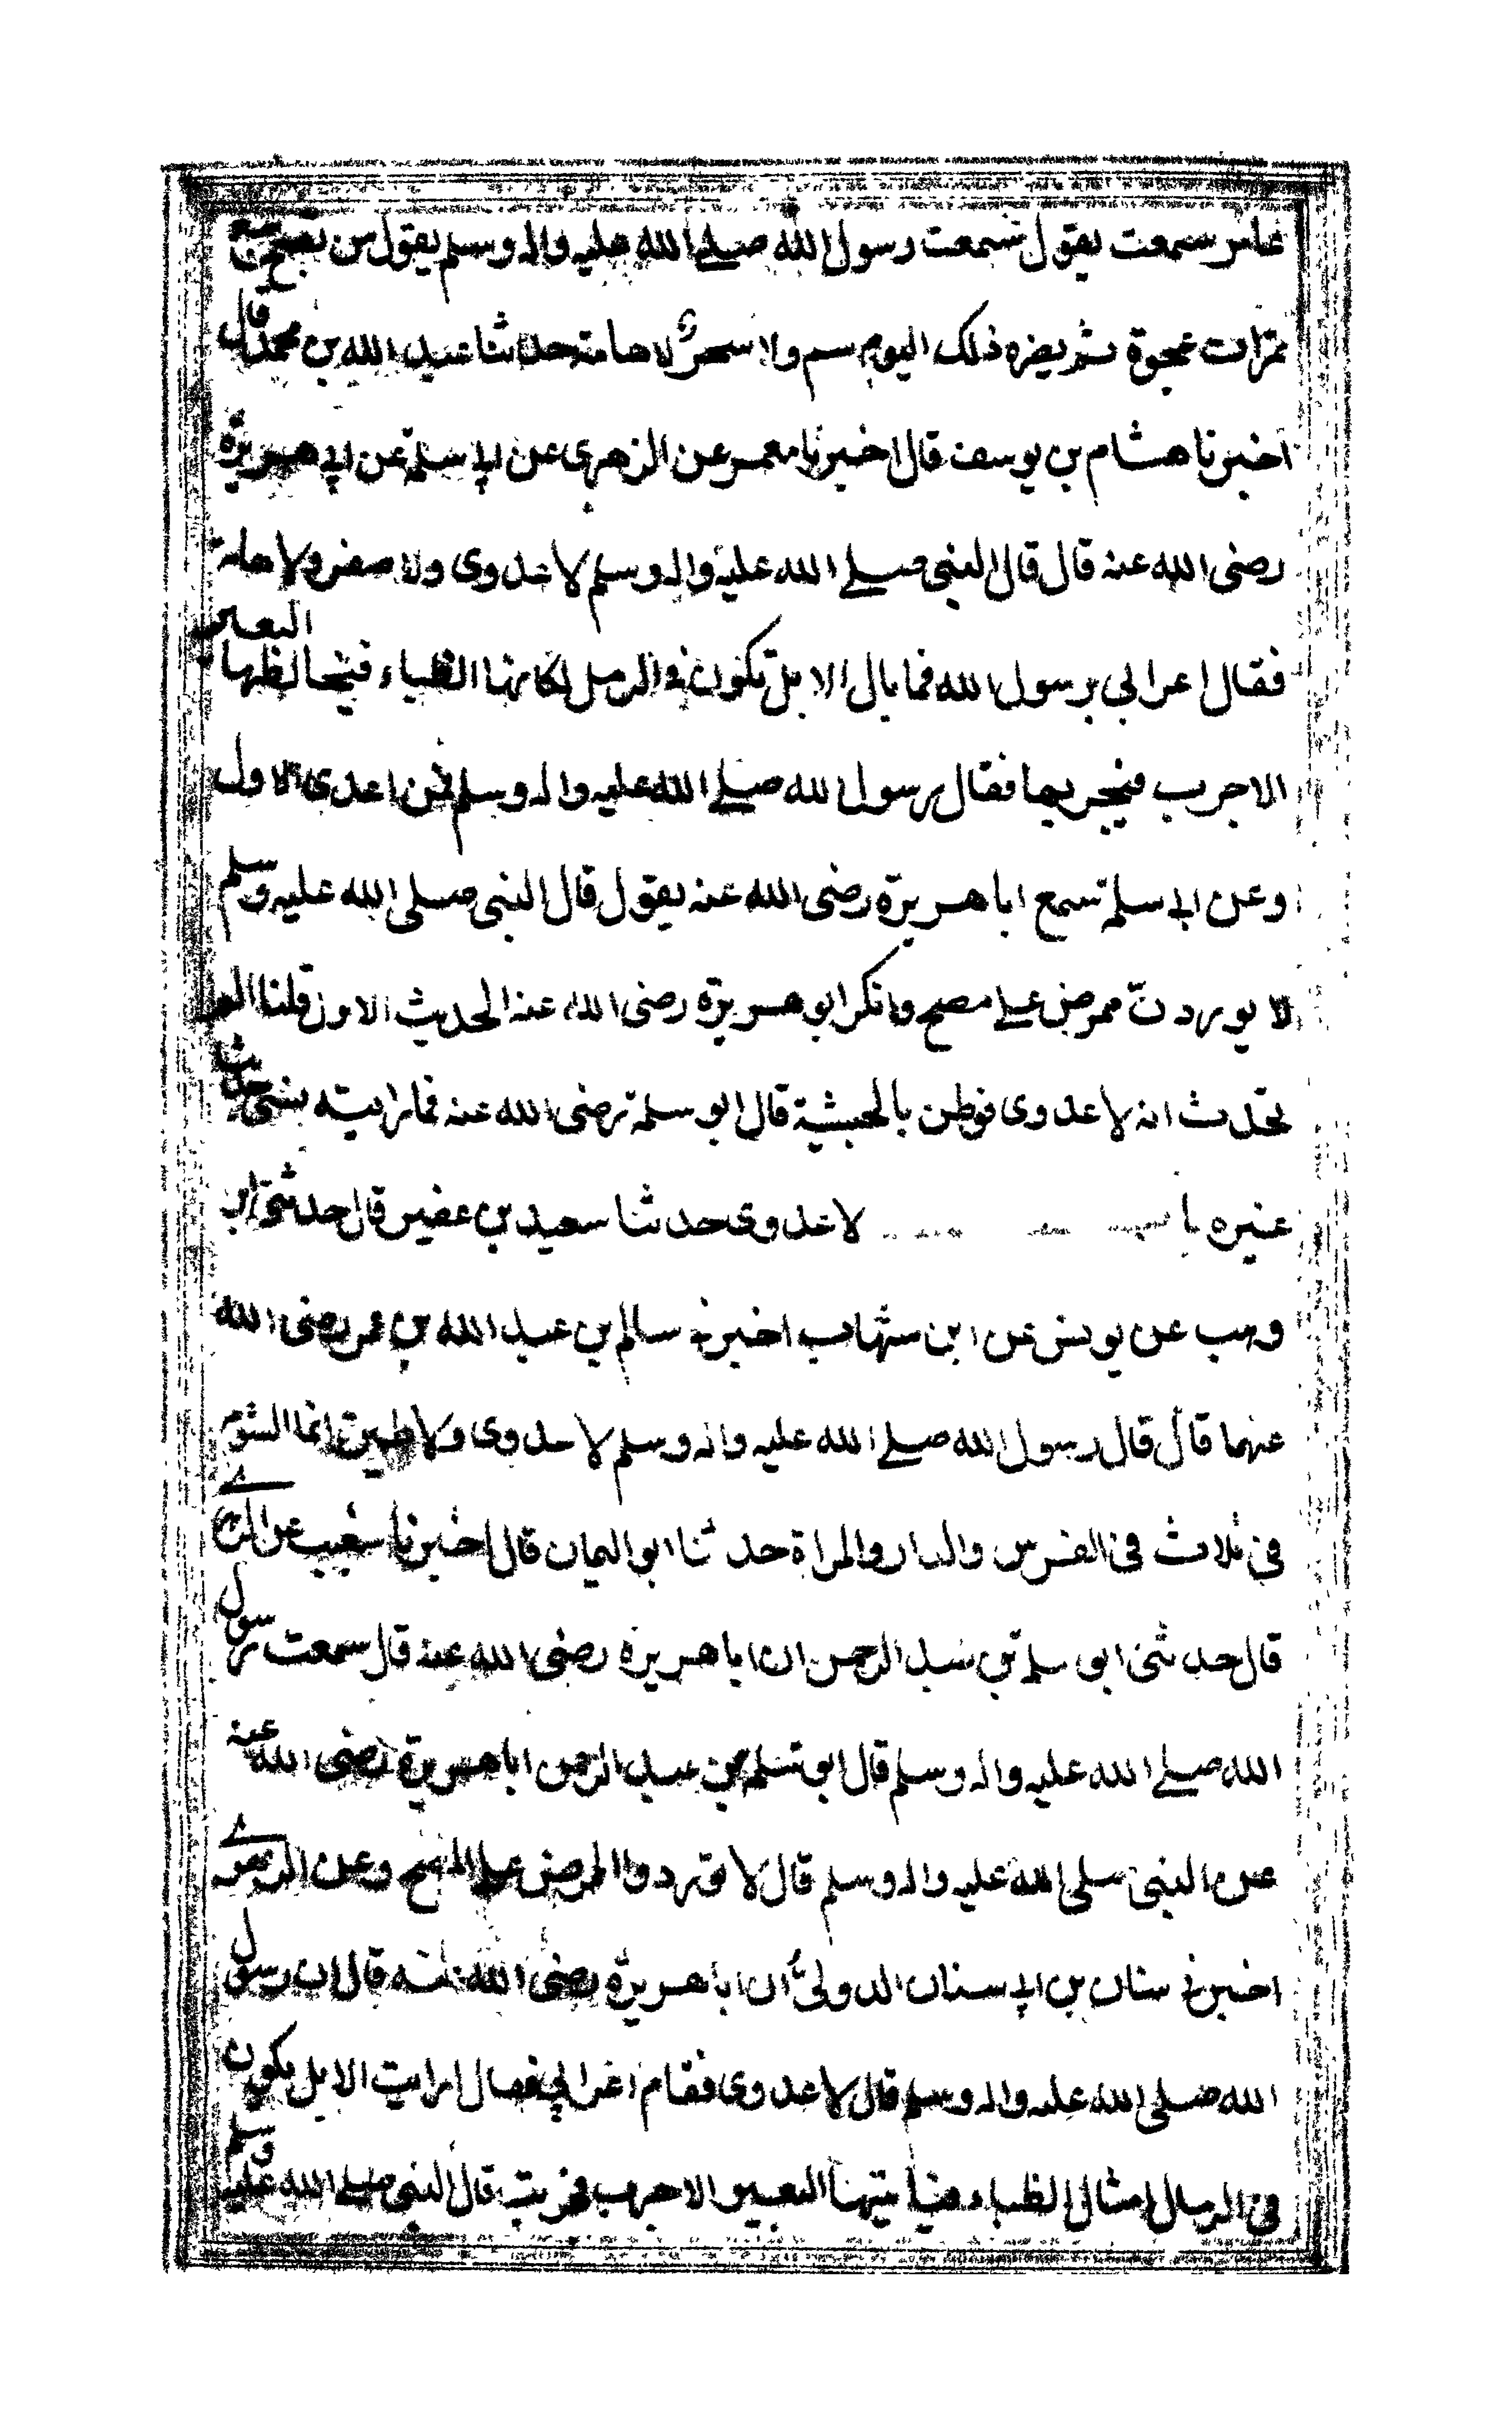 عامر سمعت يقول سمعت رسول الله صلى الله عليه واله وسلم يقول من تصبح سبع
تمرات عجوة لم يضره ذلك اليوم سم ولا سحر لا هامة حدثنا عبد الله بن محمد قال
اخبرنا هشام بن يوسف قال اخبرنا معمر عن الزهرى عن ابي سلمة عن ابي هريرة
رضى الله عنه قال قال النبى صلى الله عليه واله وسلم لا عدوى ولا صفر ولا هامة
فقال اعرابى يرسول الله فما بال الابل تكون فى الرمل لكانها الظباء فيخالطها البعير
الاجرب فيجربها فقال رسول الله صلى الله عليه واله وسلم فمن اعدى الاول
وعن ابي سلمة سمع ابا هريرة رضى الله عنه يقول قال النبى صلى الله عليه وسلم
لا يوردن ممرض على مصح وانكر ابو هريرة رضى الله عنه الحديث الاول قلنا الم
تحدث انه لا عدوى فرطن بالحبشية قال ابو سلمة رضى الله عنه فما رايته ينسى حديثا
غيره با لا عدوى حدثنا سعيد بن عفير قال حدثنى ابن
وهب عن يونس عن ابن شهاب اخبرنى سالم بن عبد الله بن عمر رضى الله
عنهما قال قال رسول الله صلى الله عليه واله وسلم لا عدوى ولا طيرة انما الشوم
فى ثلاث فى الفرس والدار والمراة حدثنا ابو اليمان قال اخبرنا شعيب عن الزهرى
قال حدثنى ابو سلمة بن عبد الرحمن ان ابا هريرة رضى الله عنه قال سمعت رسول
الله صلى الله عليه واله وسلم قال ابو سلمة بن عبد الرحمن ابا هريرة رضى الله عنه
عن النبى صلى الله عليه واله وسلم قال لا توردوا الممرض على المصح وعن الزهرى
اخبرنى سنان بن ابي سنان الدولى ان ابا هريرة رضى الله عنه قال ان رسول
الله صلى الله عليه واله وسلم قال لا عدوى فقام اعرابي فقال ارايت الابل يكون
فى الرمال امثال الظباء فياتيها البعير الاجرب فتجرب قال النبى صلى الله عليه وسلم